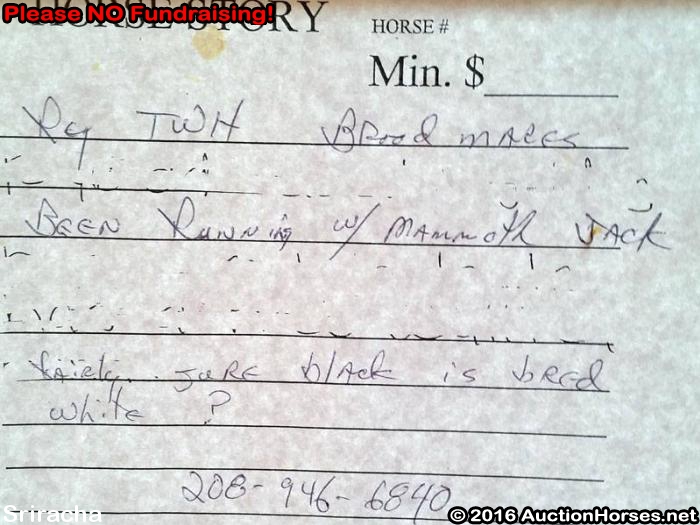 Please NO Fundraising!
HORSE STORY
HORSE #
Min. $
Reg TWH Brood mares
Been Running w/ Mammoth Jack
Fairly sure black is bred
white ?
208-946-6840
Sriracha
© 2016 AuctionHorses.net